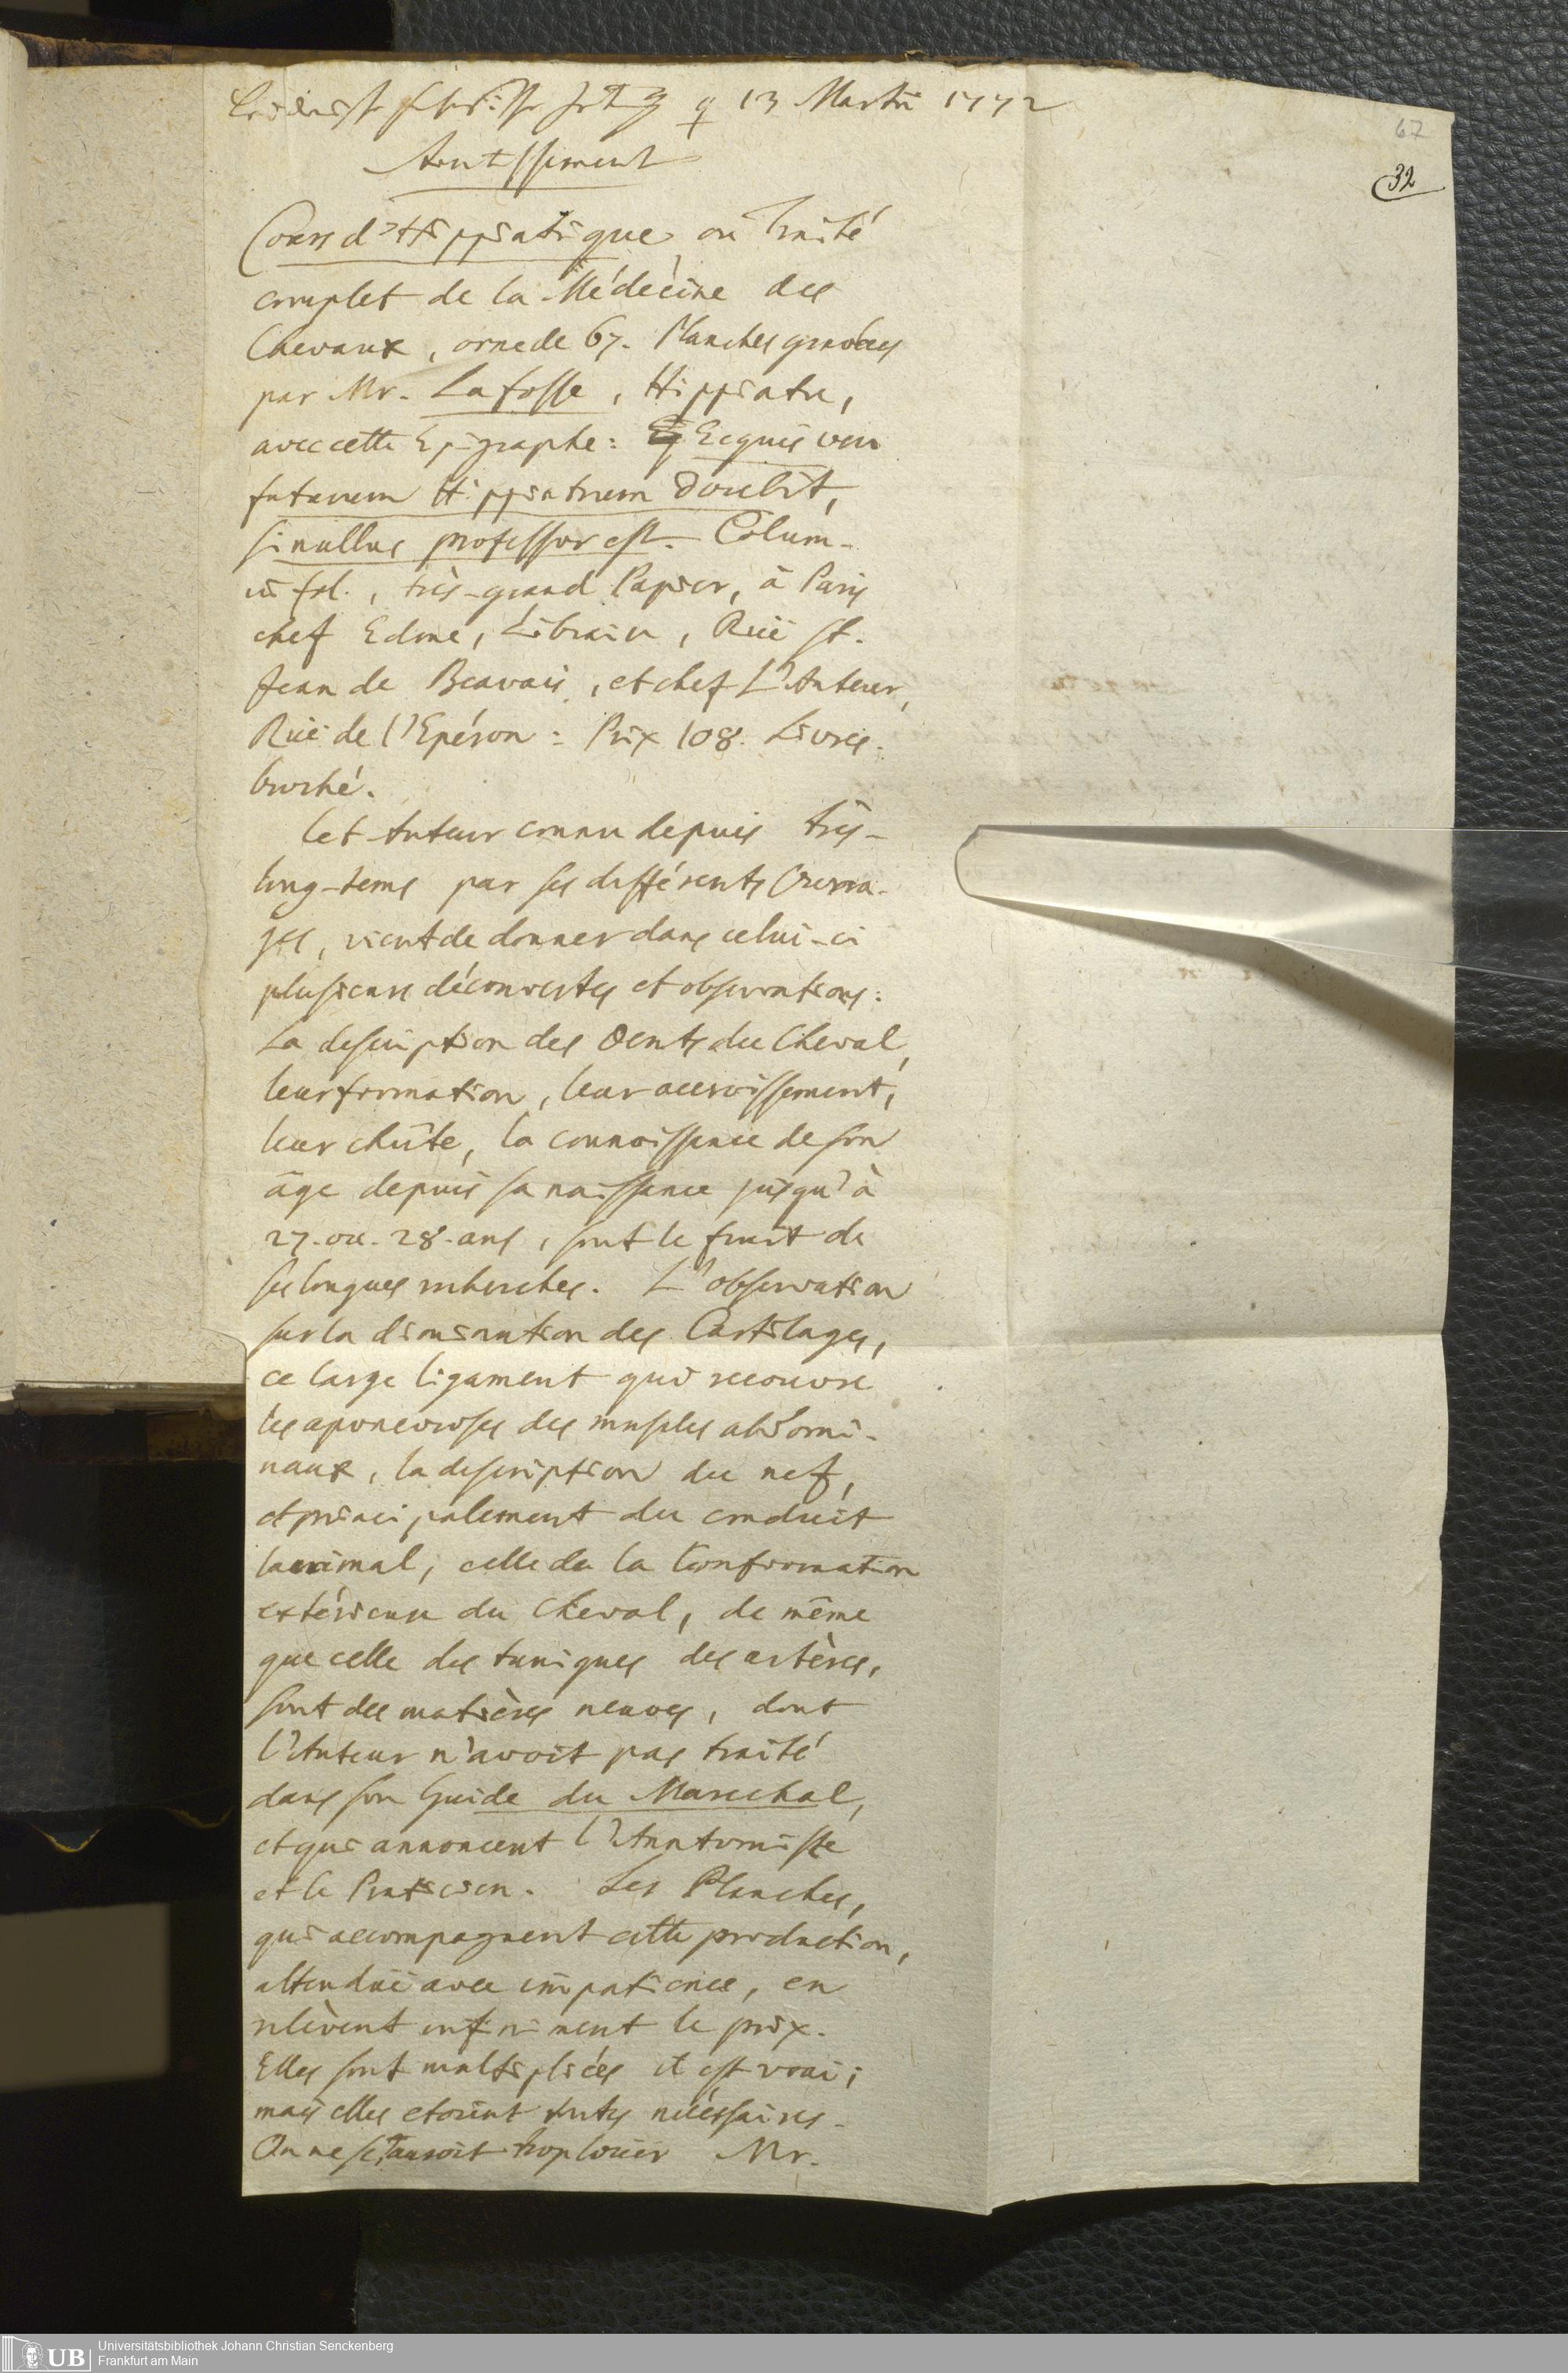 13 Martii 1772
67
32
Avertissement
Cours d'Hippiatrique ou Traité
complet de la Médécine des
Chevaux, orné de 67. Planches gravées
par Mr. Lafosse, Hippiatre,
avec cette Epigraphe: Ecquis
futurum Hippiatrum docebit,
si nullus professor est. Colum-
in fol., très-grand Papier, à Paris
chez Edme, Libraire, Ruë St.
Jean de Beavais, et chez L'Auteur,
Ruë de l'Epéron: Prix 108. Livres.
broché.
Cet Auteur connu depuis très-
long-tems par ses différents Ouvra-
ges, vient de donner dans celui-ci
plusieurs découvertes et observations:
La description des Dents du Cheval,
leur formation, leur accroissement,
leur chûte, la connoissance de son
âge depuis sa naissance jusqu'à
27. ou. 28. ans, sont le fruit de
ses longues recherches. L'observation
sur la diminution des Cartilages,
ce large ligament qui recouvre
les aponevroses des muscles abdomi-
naux, la description du nez,
et principalement du conduit
lacrimal, celle de la Conformation
extérieure du Cheval, de même
que celle des tuniques des artères,
sont des matières neuves, dont
l'Auteur n'avoit pas traité
dans son Guide du Marechal,
et qui annoncent l'Anatomiste
et le Praticien. Les Planches,
qui accompagnent cette production,
attenduë avec impatience, en
relèvent infiniment le prix.
Elles sont multipliées il est vrai;
mais elles etoient toutes nécessaires.
On ne sçauroit trop louer Mr.
UB Universitätsbibliothek Johann Christian Senckenberg
Frankfurt am Main